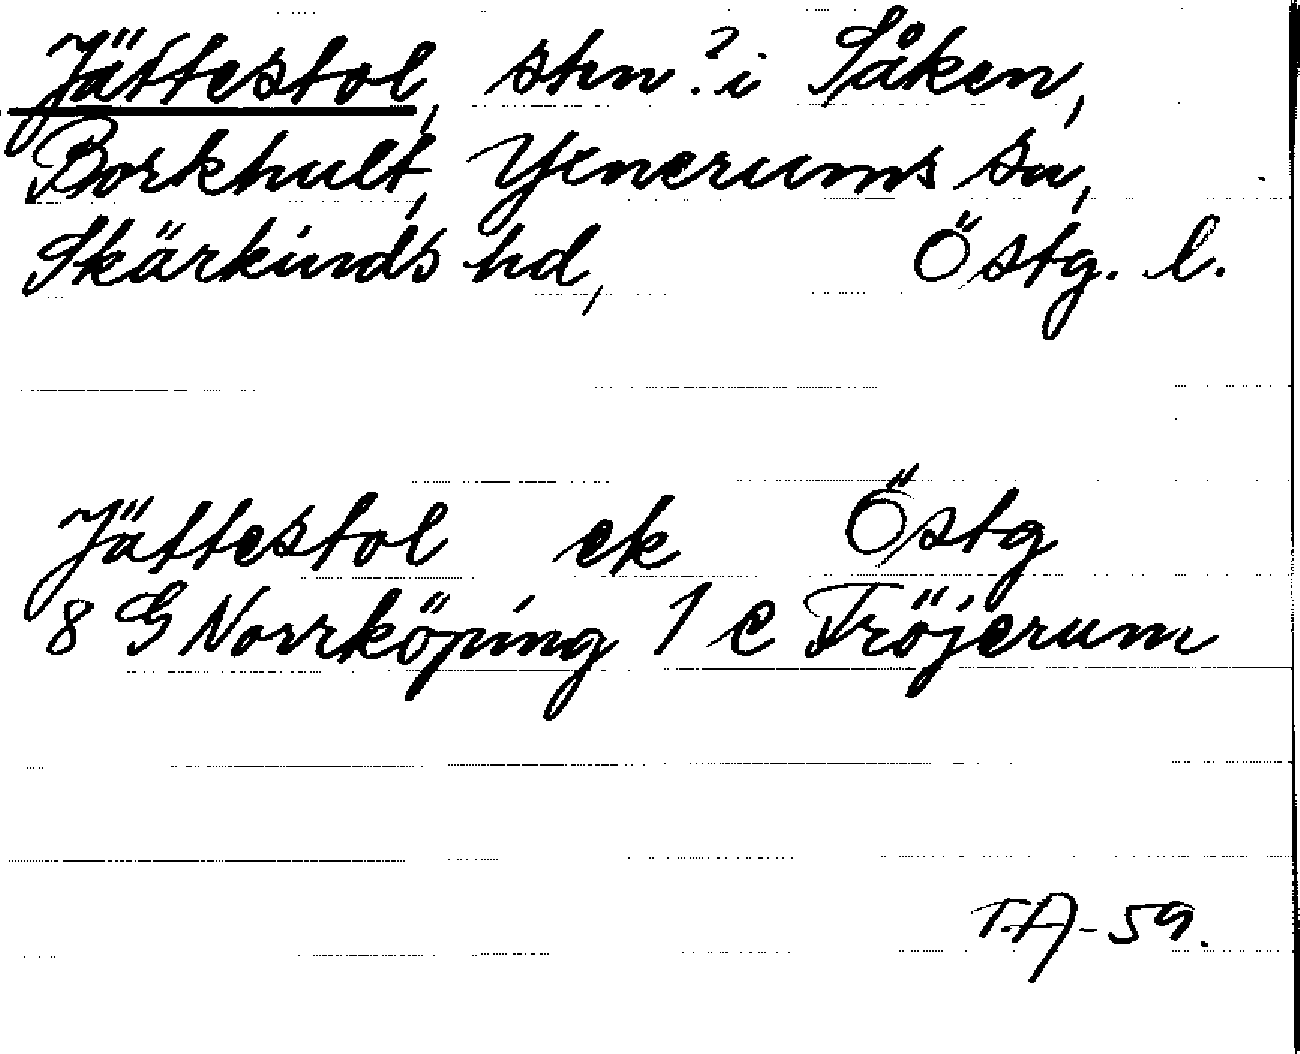 Jättestol, sten? i Såken,
Borkhult, Yxnerums sn,
Skärkinds hd, Östg. l.
Jättestol ek Östg
8 G Norrköping 1 e Fröjerum
T.A-59.